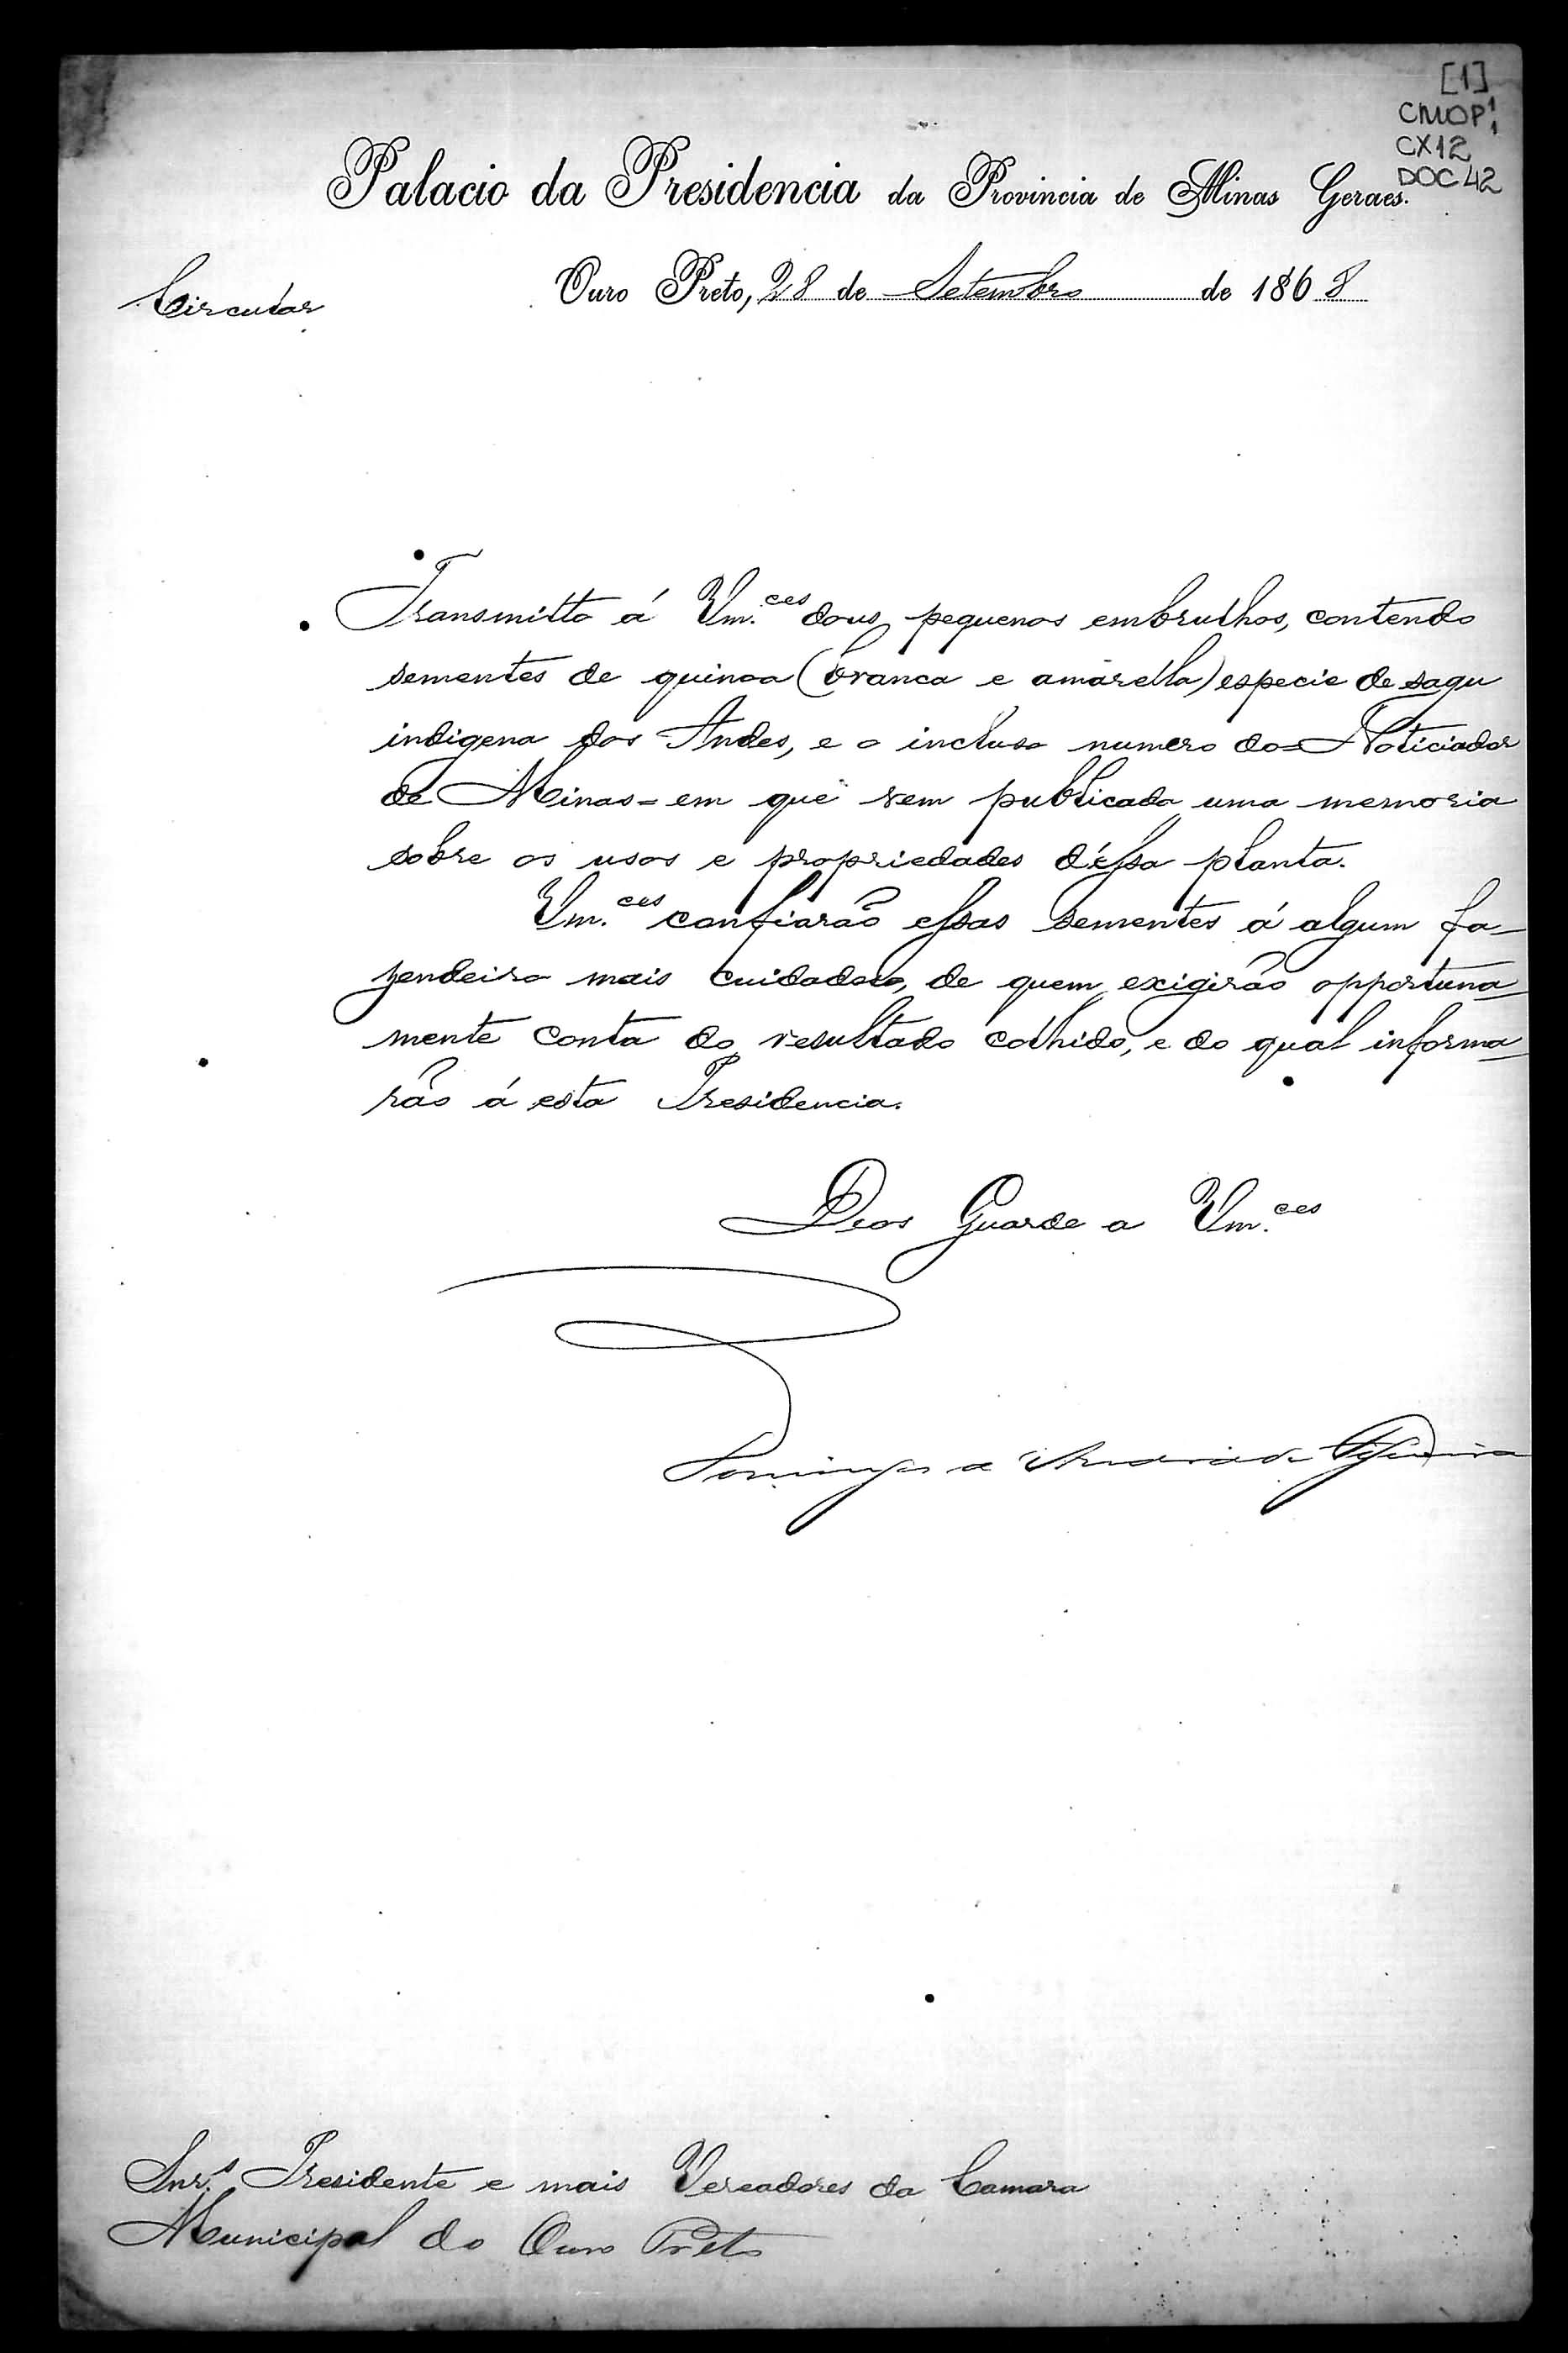 [1]
CMOP 1/1
CX12
DOC 42
Palacio da Presidencia da Provincia de Minas Geraes.
Circular
Ouro Preto, 28 de Setembro de 1868
Transmitto á Vm.ces dous pequenos embrulhos, contendo
sementes de quinoa (branca e amarella) especie de sagu
indigena dos Andes, e o incluso numero do = Noticiador
de Minas = em que vem publicada uma memoria
sobre os usos e propriedades d'essa planta.
Vm.ces confiarão essas sementes á algum fa-
zendeiro mais cuidadoso, de quem exigirão opportuna-
mente conta do resultado colhido, e do qual informa-
rão á esta Presidencia.
Deos Guarde a Vm.ces
Domingos de Andrade Figueira
Snr.s Presidente e mais Vereadores da Camara
Municipal do Ouro Preto